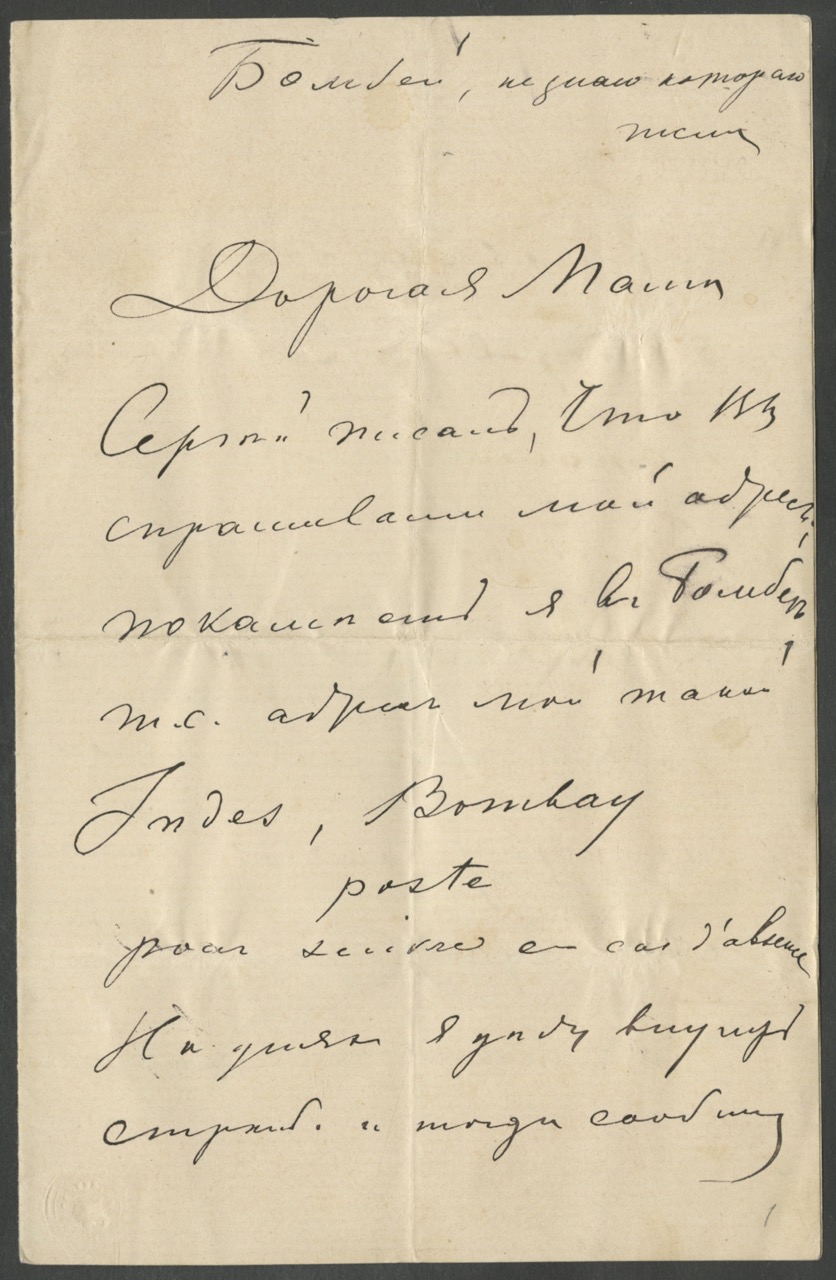 Бомбей, не знаю котораго
числа
Дорогая Маша
Сергѣй писалъ, что Вы
спрашивали мой адресъ,
покамѣстъ я въ Бомбеѣ,
т.е. адресъ мой такой
Indes, Bombay
poste
pour suivre en cas d'absence
На дняхъ я уѣду внутрь
страны и тогда сообщу